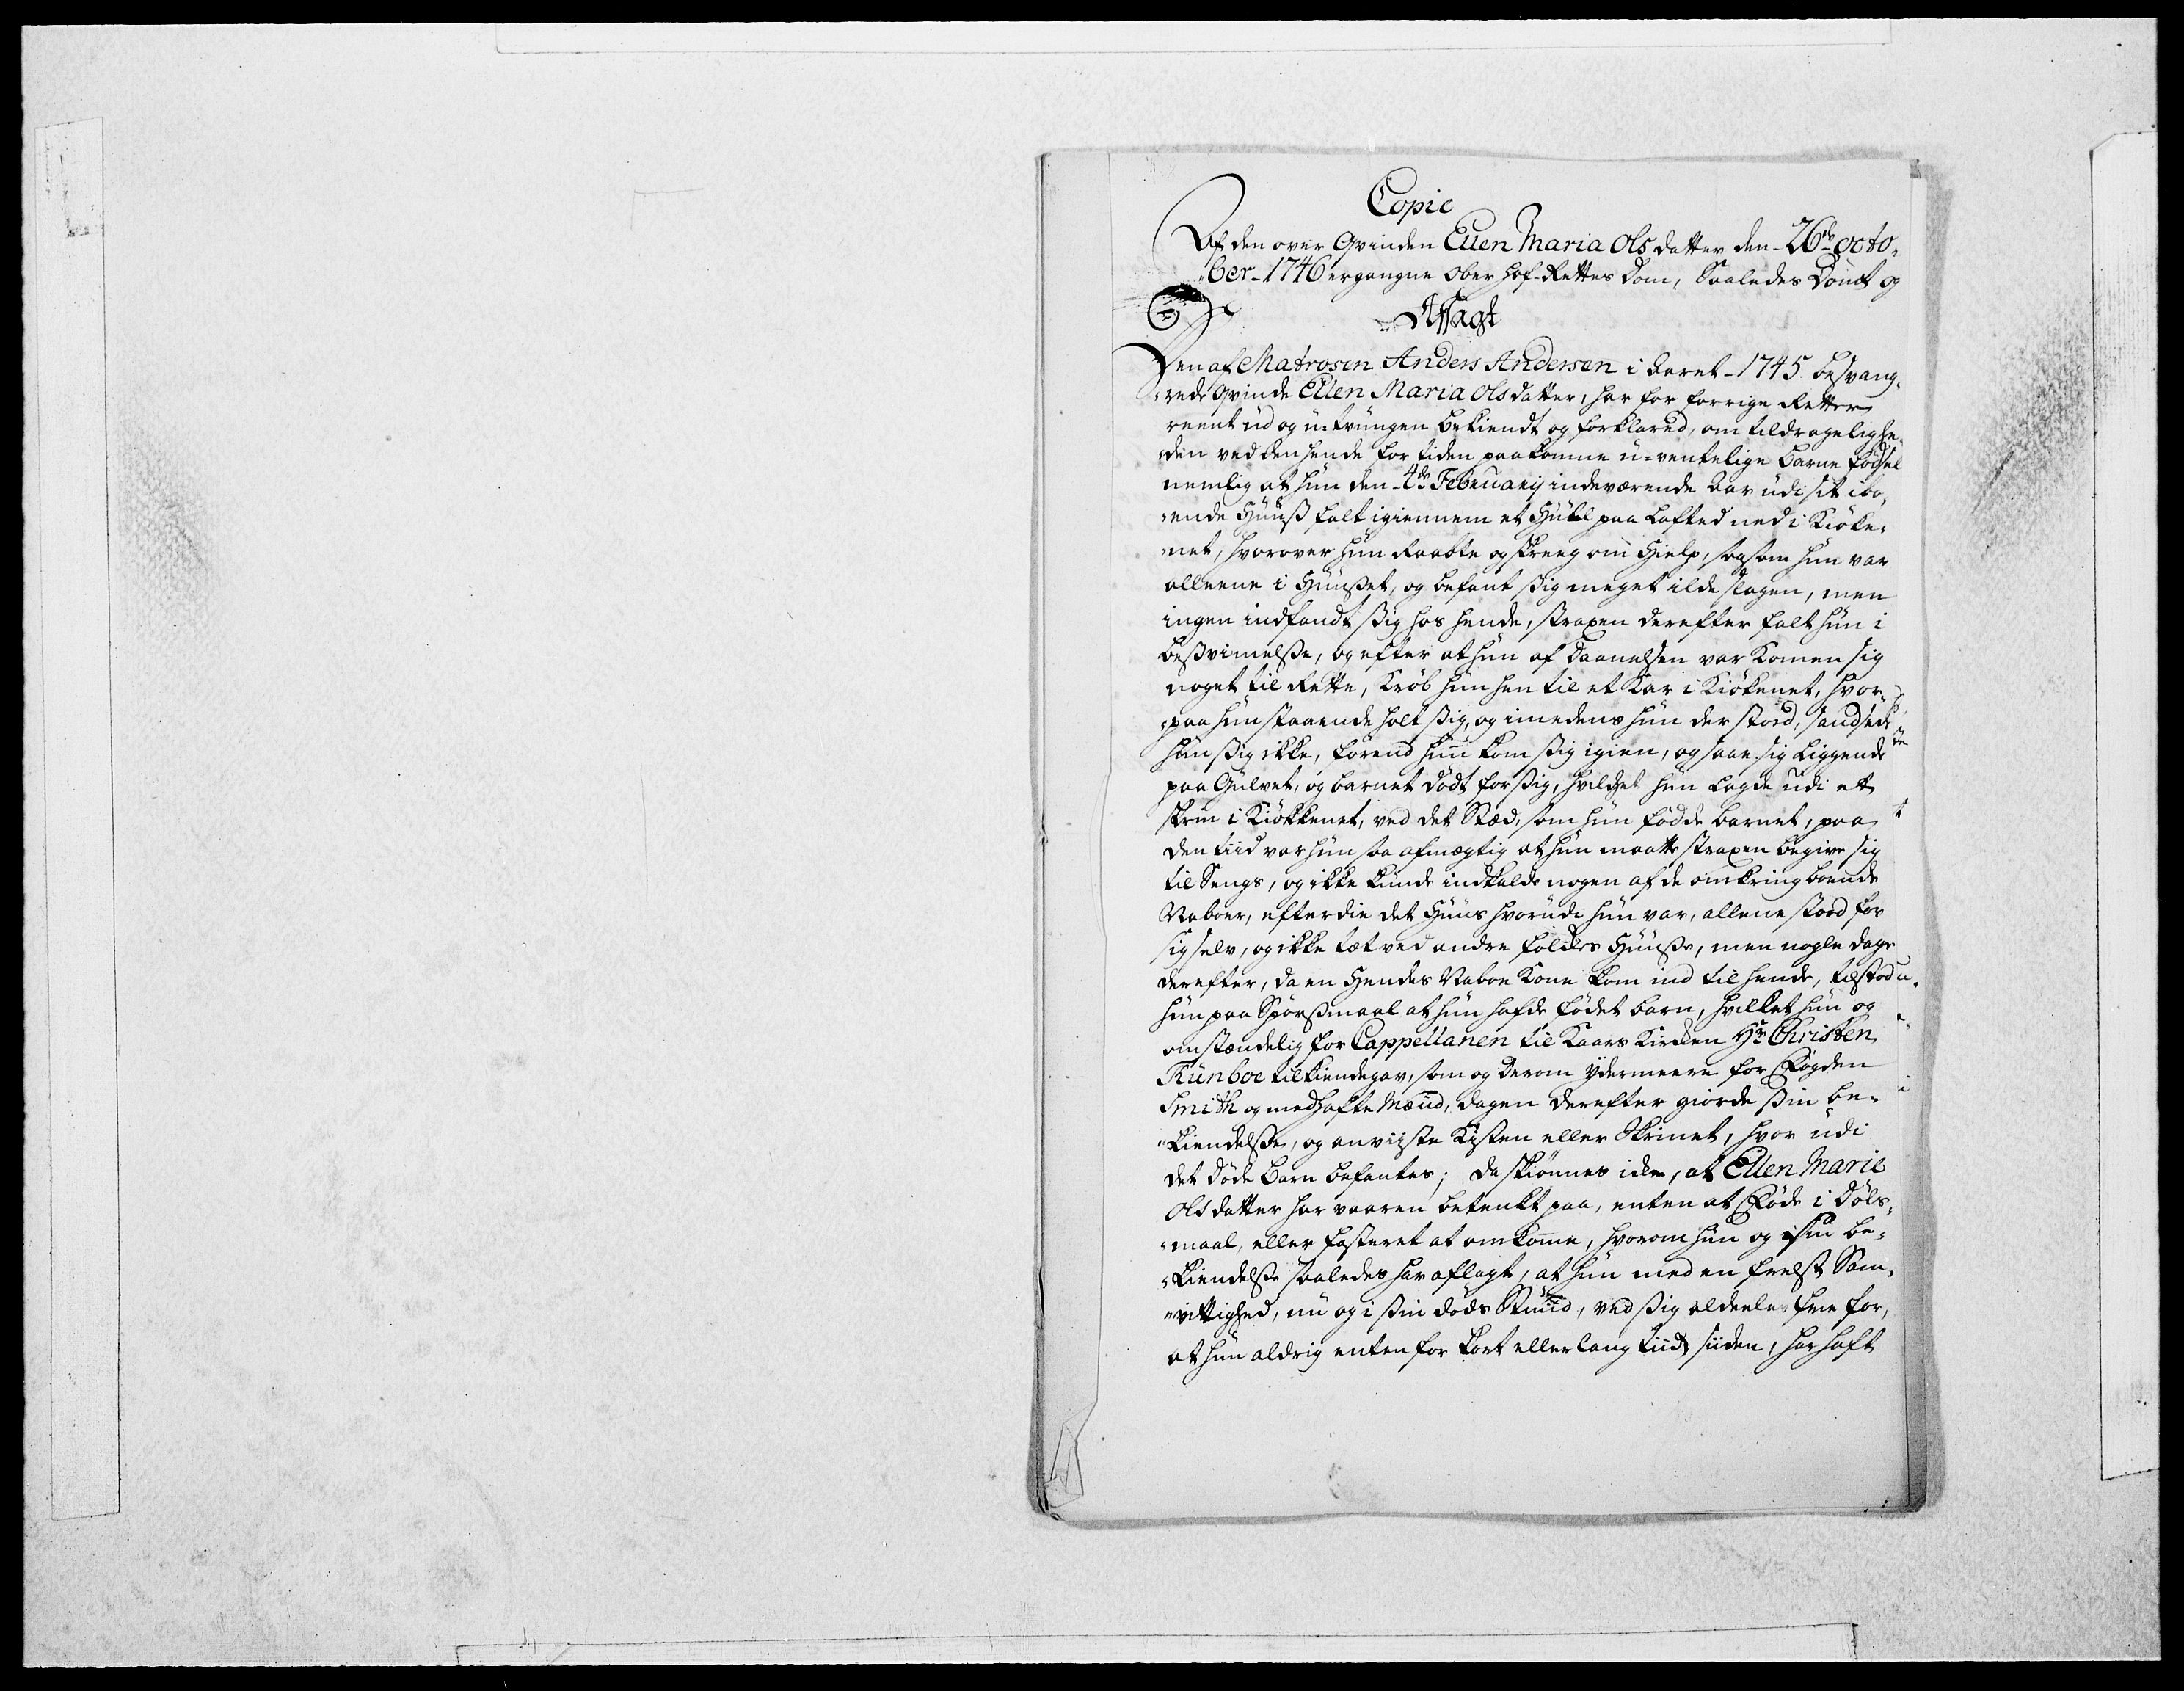 Copie
Af den over Qvinden Ellen Maria Olsdatter den 26de octo-
ber 1746 ergangne Ober Hof-Rettes Dom, Saaledes Dömt og
Afsagt
Den af Matrosen Anders Andersen i Aaret 1745. besvang-
rede Qvinde Ellen Maria Olsdatter, har for forrige Retter
reent ud og utvungen bekiendt og forklared, om tildragelighe-
den ved den hende for tiden paakomne u-ventelige barne födsel
nemlig at hun den 4de February indeværende Aar udi sit iboe-
ende Huuss falt igiennem et Hull paa Lofted ned i Kiöke-
net, hvorover hun Raabte og skreeg om Hielp, saasom hun var
alleene i Huuset, og befant sig meget ilde slagen, men
ingen indfandt sig hos hende, straxen derefter falt hun i
besvimelse, og efter at hun af Daanelsen var Komen sig
noget til Rette, Kröb hun hen til et Kar i Kiökenet, hvor-
paa hun staaende holt sig, og imedens hun der stod, sandsede
hun sig ikke, förend hun kom sig igien, og saae sig liggende
paa Gulvet, og barnet dödt for sig, hvilchet hun lagde udi et
skrin i Kiökkenet, ved det Stæd, som hun födde barnet, paa
den tiid var hun saa afmægtig at hun maatte straxen begive sig
til Sengs, og ikke kunde indkalde nogen af de omkring boende
Naboer, efterdie det Huus hvorudi hun var, allene stood for
sig selv, og ikke tæt ved andre folckes Huuse, men nogle dage
derefter, da en Hendes Naboe Kone kom ind til hende, tilstod
hun paa Spörssmaal at hun hafde födet barn, hvilket hun og
omstændelig for Cappellanen til Kaars Kircken Hr Christen
Runboe tilkiendegav, som og derom Ydermeere for Fogden
Smith og medhafte Mænd, dagen derefter giorde sin be-
kiendelse, og anviiste Kisten eller Skrinet, hvor udi
det döde barn befantes; da skiönnes icke, at Ellen Marie
Olsdatter har vaaren betenkt paa, enten at Föde i döls-
maal, eller fosteret at omkomme, hvorom hun og sin be-
kiendelse saaledes har aflagt, at hun med en frelst Sam-
vittighed, nu og i sin döds Stund, ved sig aldeeles frie for,
at hun aldrig enten for kort eller lang tiid siiden, har haft